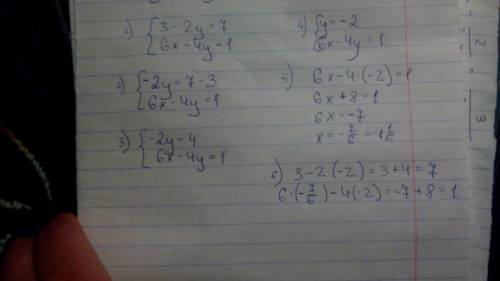 1) { 3 - 2y = 7
6x - 4y = 1
2) { -2y = 7 - 3
6x - 4y = 1
3) { -2y = 4
6x - 4y = 1
4) { y = -2
6x - 4y = 1
5) 6x - 4·(-2) = 1
6x + 8 = 1
6x = -7
x = -7/6 = -1 1/6
6) 3 - 2·(-2) = 3 + 4 = 7
6·(-7/6) - 4(-2) = -7 + 8 = 1
2
3